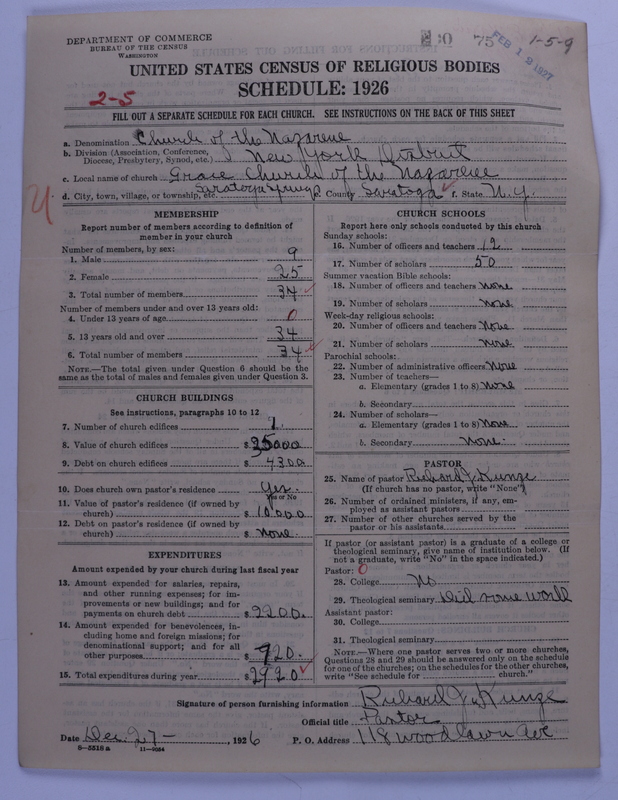 DEPARTMENT OF COMMERCE
BUREAU OF THE CENSUS
WASHINGTON
75
FEB 19 1927
1-5-9
UNITED STATES CENSUS OF RELIGIOUS BODIES
SCHEDULE: 1926
2-5
FILL OUT A SEPARATE SCHEDULE FOR EACH CHURCH. SEE INSTRUCTIONS ON THE BACK OF THIS SHEET
a. Denomination Church of the Nazarene
b. Division (Association, Conference, Diocese, Presbytery, Synod, etc.) New York District
c. Local name of church Grace Church of the Nazarene
d. City, town, village, or township, etc. Saratoga Springs County Saratoga f. State N.Y.
MEMBERSHIP
Report number of members according to definition of
member in your church
Number of members, by sex:
1. Male 9
2. Female 25
3. Total number of members 34
Number of members under and over 13 years old:
4. Under 13 years of age 0
5. 13 years old and over 34
6. Total number of members 34
NOTE.—The total given under Question 6 should be the
same as the total of males and females given under Question 3.
CHURCH BUILDINGS
See instructions, paragraphs 10 to 12
7. Number of church edifices 1
8. Value of church edifices $ 35000
9. Debt on church edifices $ 4300
10. Does church own pastor's residence Yes.
Yes or No
11. Value of pastor's residence (if owned by
church) $ 10000
12. Debt on pastor's residence (if owned by
church) $ None.
EXPENDITURES
Amount expended by your church during last fiscal year
13. Amount expended for salaries, repairs,
and other running expenses; for im-
provements or new buildings; and for
payments on church debt $ 2200.
14. Amount expended for benevolences, in-
cluding home and foreign missions; for
denominational support; and for all
other purposes $ 720.
15. Total expenditures during year $ 2920
CHURCH SCHOOLS
Report here only schools conducted by this church
Sunday schools:
16. Number of officers and teachers 12
17. Number of scholars 50
Summer vacation Bible schools:
18. Number of officers and teachers None
19. Number of scholars None
Week-day religious schools:
20. Number of officers and teachers None
21. Number of scholars None
Parochial schools:
22. Number of administrative officers None
23. Number of teachers—
a. Elementary (grades 1 to 8) None
b. Secondary
24. Number of scholars—
a. Elementary (grades 1 to 8) None
b. Secondary None.
PASTOR
25. Name of pastor Richard J. Kunze
(If church has no pastor, write "None")
26. Number of ordained ministers, if any, em-
ployed as assistant pastors
27. Number of other churches served by the
pastor or his assistants
If pastor (or assistant pastor) is a graduate of a college or
theological seminary, give name of institution below. (If
not a graduate, write "No" in the space indicated.)
Pastor: 0
28. College No
29. Theological seminary Did some work
Assistant pastor:
30. College
31. Theological seminary
NOTE.—Where one pastor serves two or more churches,
Questions 28 and 29 should be answered only on the schedule
for one of the churches; on the schedules for the other churches,
write "See schedule for church."
Signature of person furnishing information Richard J. Kunze
Official title Pastor
Date Dec. 27 — , 1926 P. O. Address 118 Woodlawn Ave
8-5518 a 11-9054